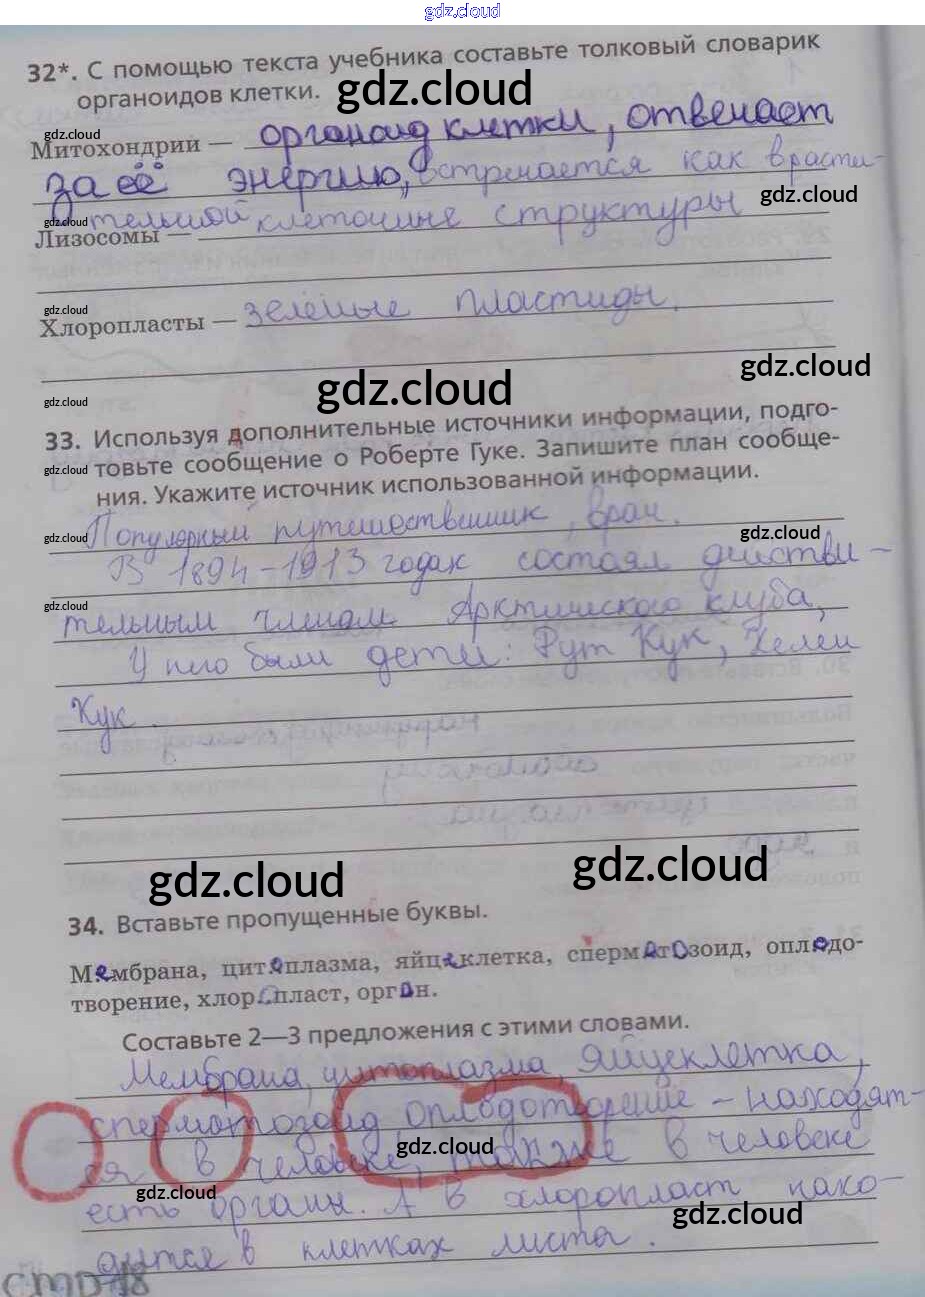 gdz.cloud
32*. С помощью текста учебника составьте толковый словарик
органоидов клетки. gdz.cloud
gdz.cloud
Митохондрии — органоид клетки, отвечает
за её энергию, встречается как в расти-
gdz.cloud
gdz.cloud
тельной клеточные структуры
Лизосомы —
gdz.cloud
Хлоропласты — зелёные пластиды.
gdz.cloud
gdz.cloud
gdz.cloud
33. Используя дополнительные источники информации, подго-
gdz.cloud
товьте сообщение о Роберте Гуке. Запишите план сообще-
ния. Укажите источник использованной информации.
gdz.cloud
Популярный путешественник, врач.
gdz.cloud
В 1894-1913 годах состоял действи-
gdz.cloud
тельным членом Арктического клуба,
У него были дети: Рут Кук, Хелен
Кук.
gdz.cloud
gdz.cloud
34. Вставьте пропущенные буквы.
Мембрана, цитоплазма, яйцеклетка, сперматозоид, оплодо-
творение, хлоропласт, орган.
Составьте 2—3 предложения с этими словами.
Мембрана, цитоплазма, яйцеклетка,
сперматозоид оплодотворение - находят-
gdz.cloud
ся в человеке, также в человеке
gdz.cloud
есть органы. А в хлоропласт нахо-
gdz.cloud
дится в клетках листа.